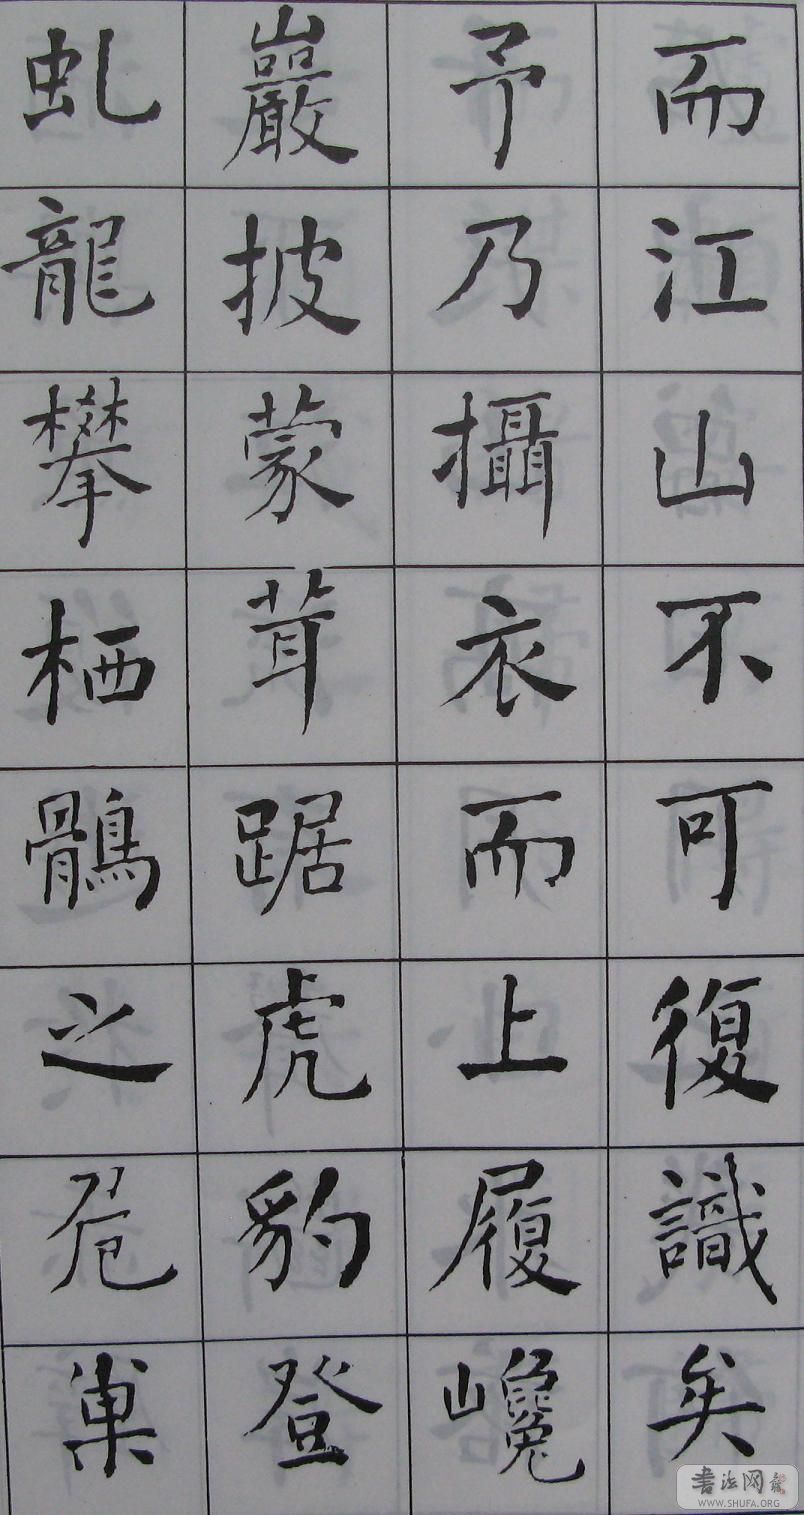 而江山不可復識矣
予乃攝衣而上履巉
巖披蒙茸踞虎豹登
虬龍攀栖鶻之危巢
书法网
WWW.SHUFA.ORG